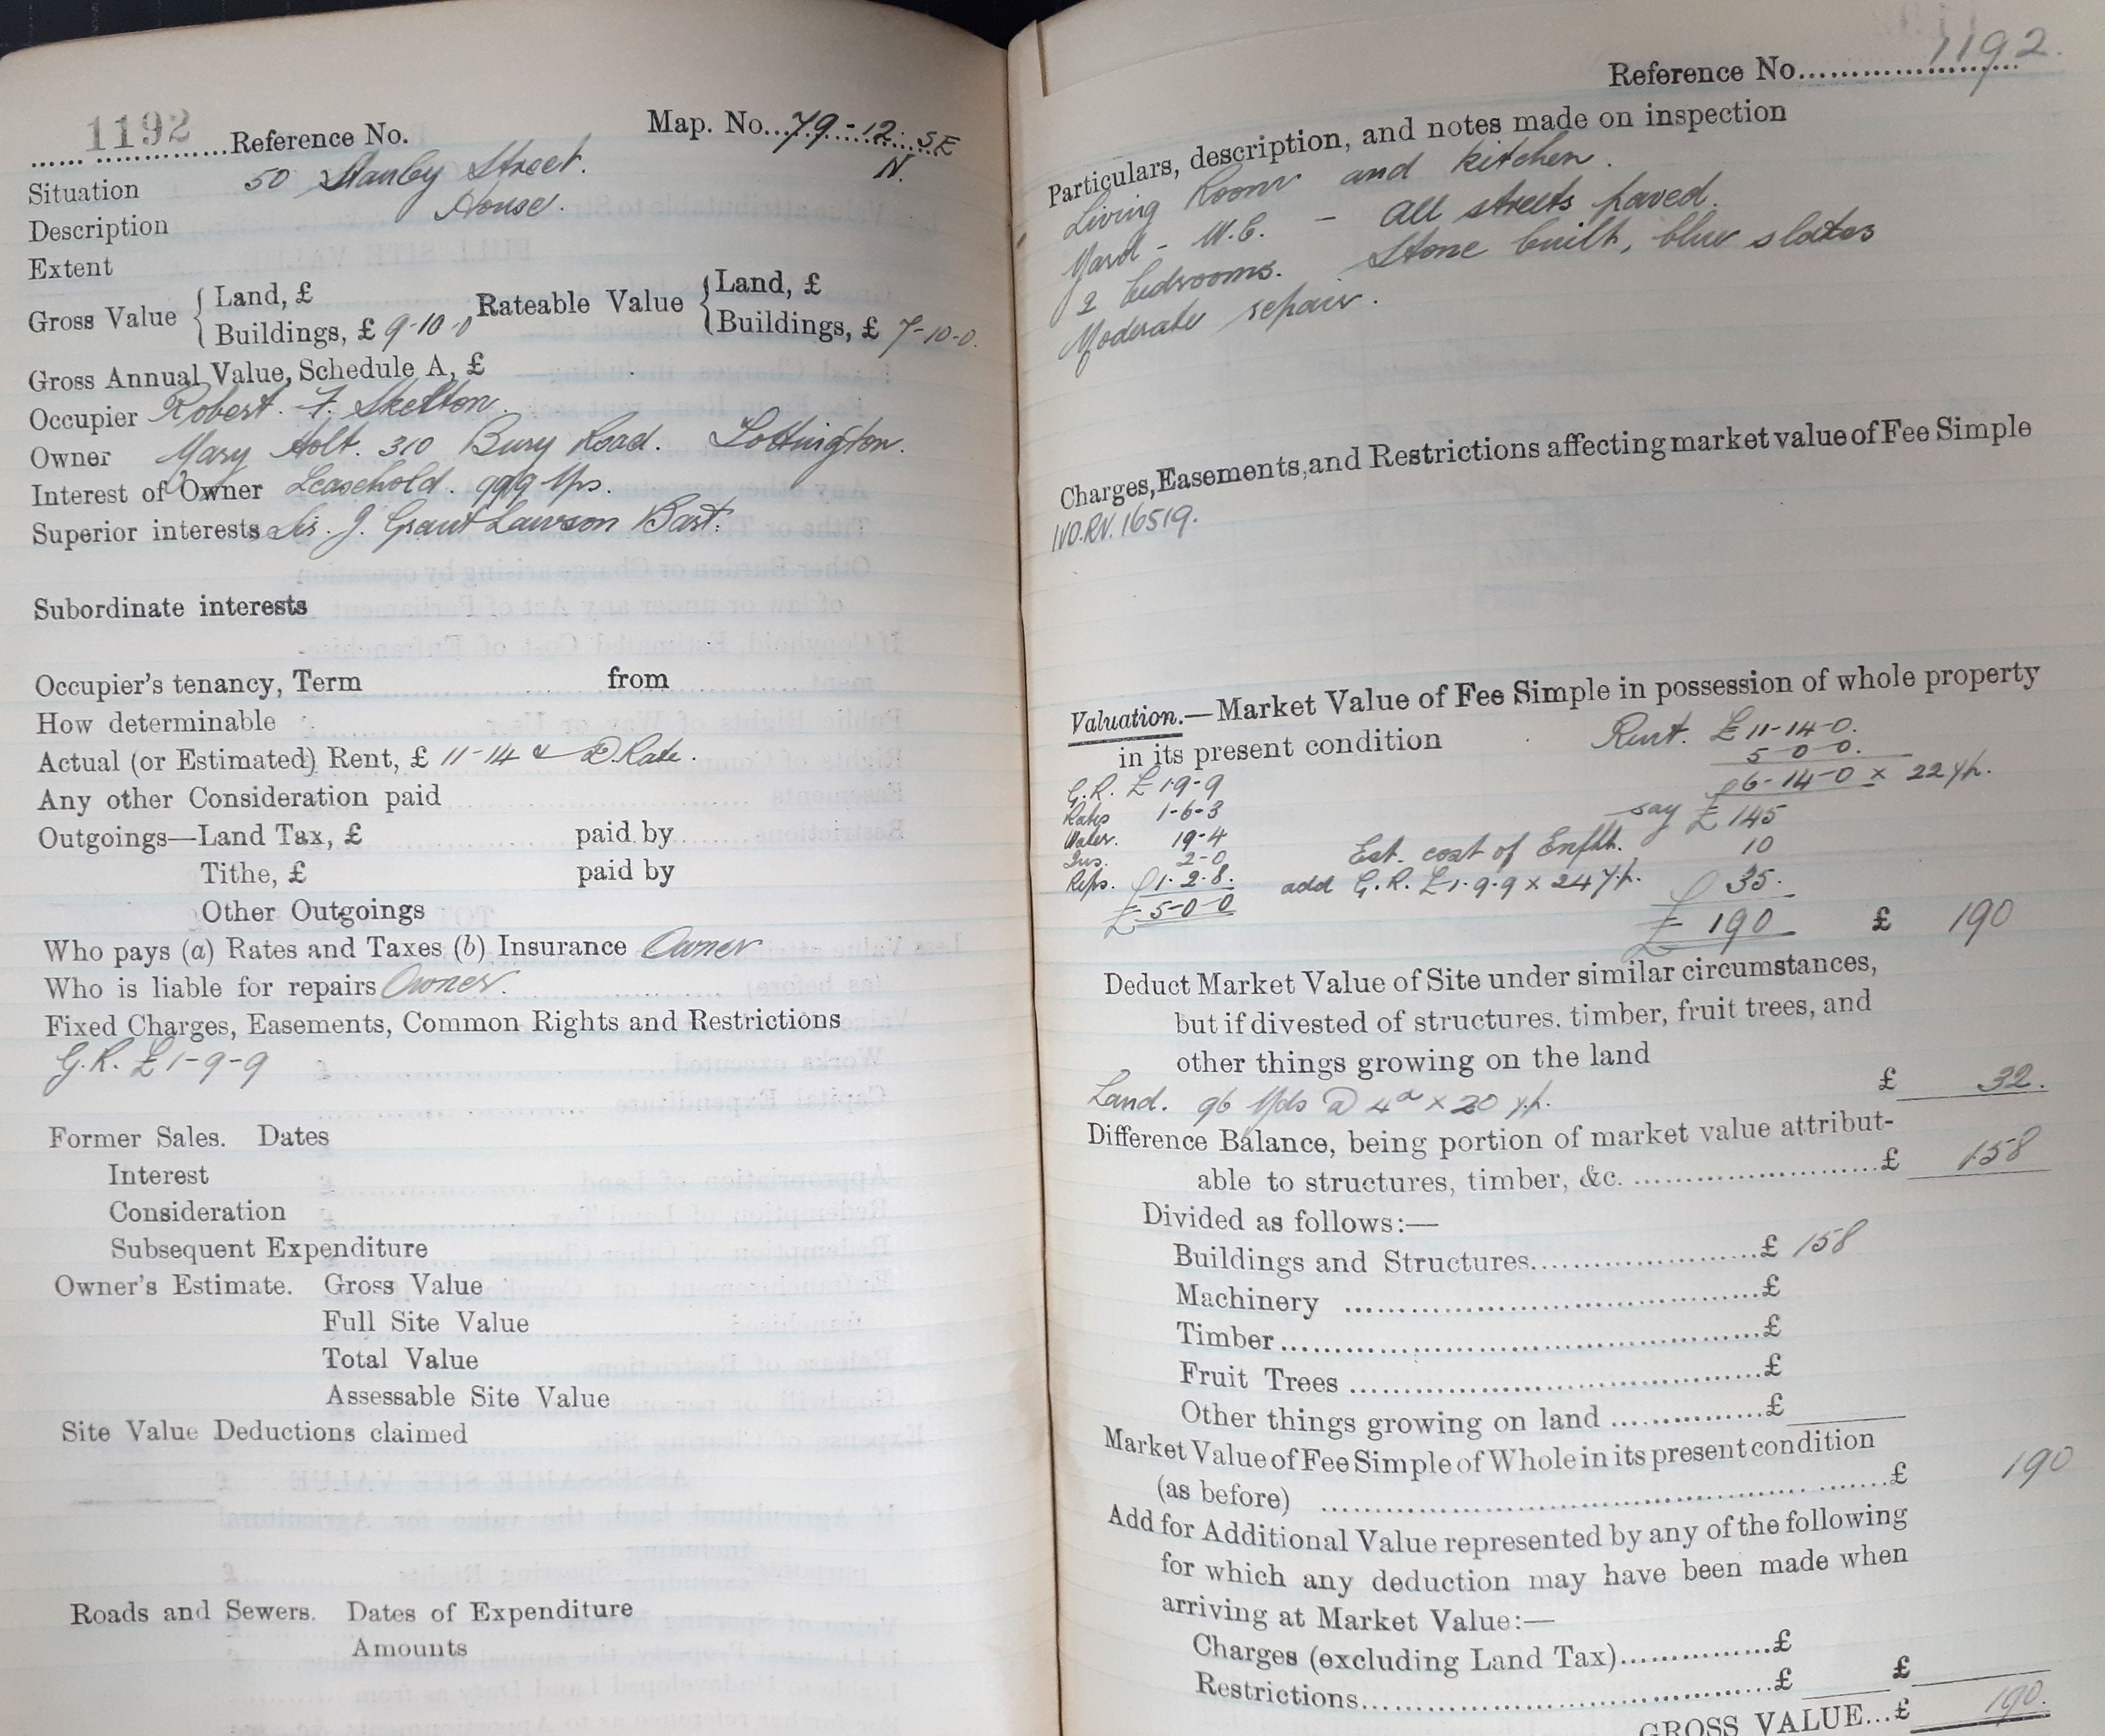 1192 Reference No. Map. No. 79-12. SE
N.
Situation 50 Stanley Street.
Description House.
Extent
Gross Value { Land, £ Rateable Value { Land, £
Buildings, £ 9-10-0 Buildings, £ 7-10-0.
Gross Annual Value, Schedule A, £
Occupier Robert. F. Skelton.
Owner Mary Holt. 310 Bury Road. Tottington.
Interest of Owner Leasehold. 999 Yrs.
Superior interests Sir. J. Grant Lawson Bart.
Subordinate interests
Occupier's tenancy, Term from
How determinable
Actual (or Estimated) Rent, £ 11-14 & D. Rate.
Any other Consideration paid
Outgoings—Land Tax, £ paid by
Tithe, £ paid by
Other Outgoings
Who pays (a) Rates and Taxes (b) Insurance Owner
Who is liable for repairs Owner.
Fixed Charges, Easements, Common Rights and Restrictions
G.R. £1-9-9
Former Sales. Dates
Interest
Consideration
Subsequent Expenditure
Owner's Estimate. Gross Value
Full Site Value
Total Value
Assessable Site Value
Site Value Deductions claimed
Roads and Sewers. Dates of Expenditure
Amounts
Reference No. 1192.
Particulars, description, and notes made on inspection
Living Room and kitchen.
Yard - W.C. - All streets paved.
2 bedrooms. Stone built, blue slates
Moderate repair.
Charges, Easements, and Restrictions affecting market value of Fee Simple
IVO.RV. 16519.
Valuation.—Market Value of Fee Simple in possession of whole property
in its present condition Rent. £11-14-0.
5-0-0.
G.R. £1-9-9 £6-14-0 x 22 y.p.
Rates 1-6-3 say £145
Water. 19-4 Est. cost of Enfht. 10
Ins. 2-0
Reps. £1-2-8. add G.R. £1.9.9 x 24 y.p. £35.
£5-0-0 £190 £ 190
Deduct Market Value of Site under similar circumstances,
but if divested of structures, timber, fruit trees, and
other things growing on the land
Land. 96 Yds @ 4d x 20 y.p. £ 32.
Difference Balance, being portion of market value attribut-
able to structures, timber, &c. £ 158
Divided as follows:—
Buildings and Structures £ 158
Machinery £
Timber £
Fruit Trees £
Other things growing on land £
Market Value of Fee Simple of Whole in its present condition
(as before) £ 190
Add for Additional Value represented by any of the following
for which any deduction may have been made when
arriving at Market Value:—
Charges (excluding Land Tax) £
Restrictions £ £
GROSS VALUE...£ 190.